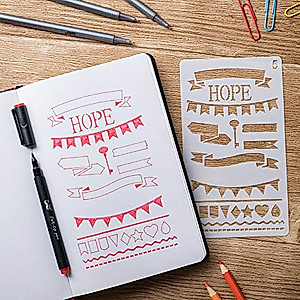 HOPE
HOPE
5